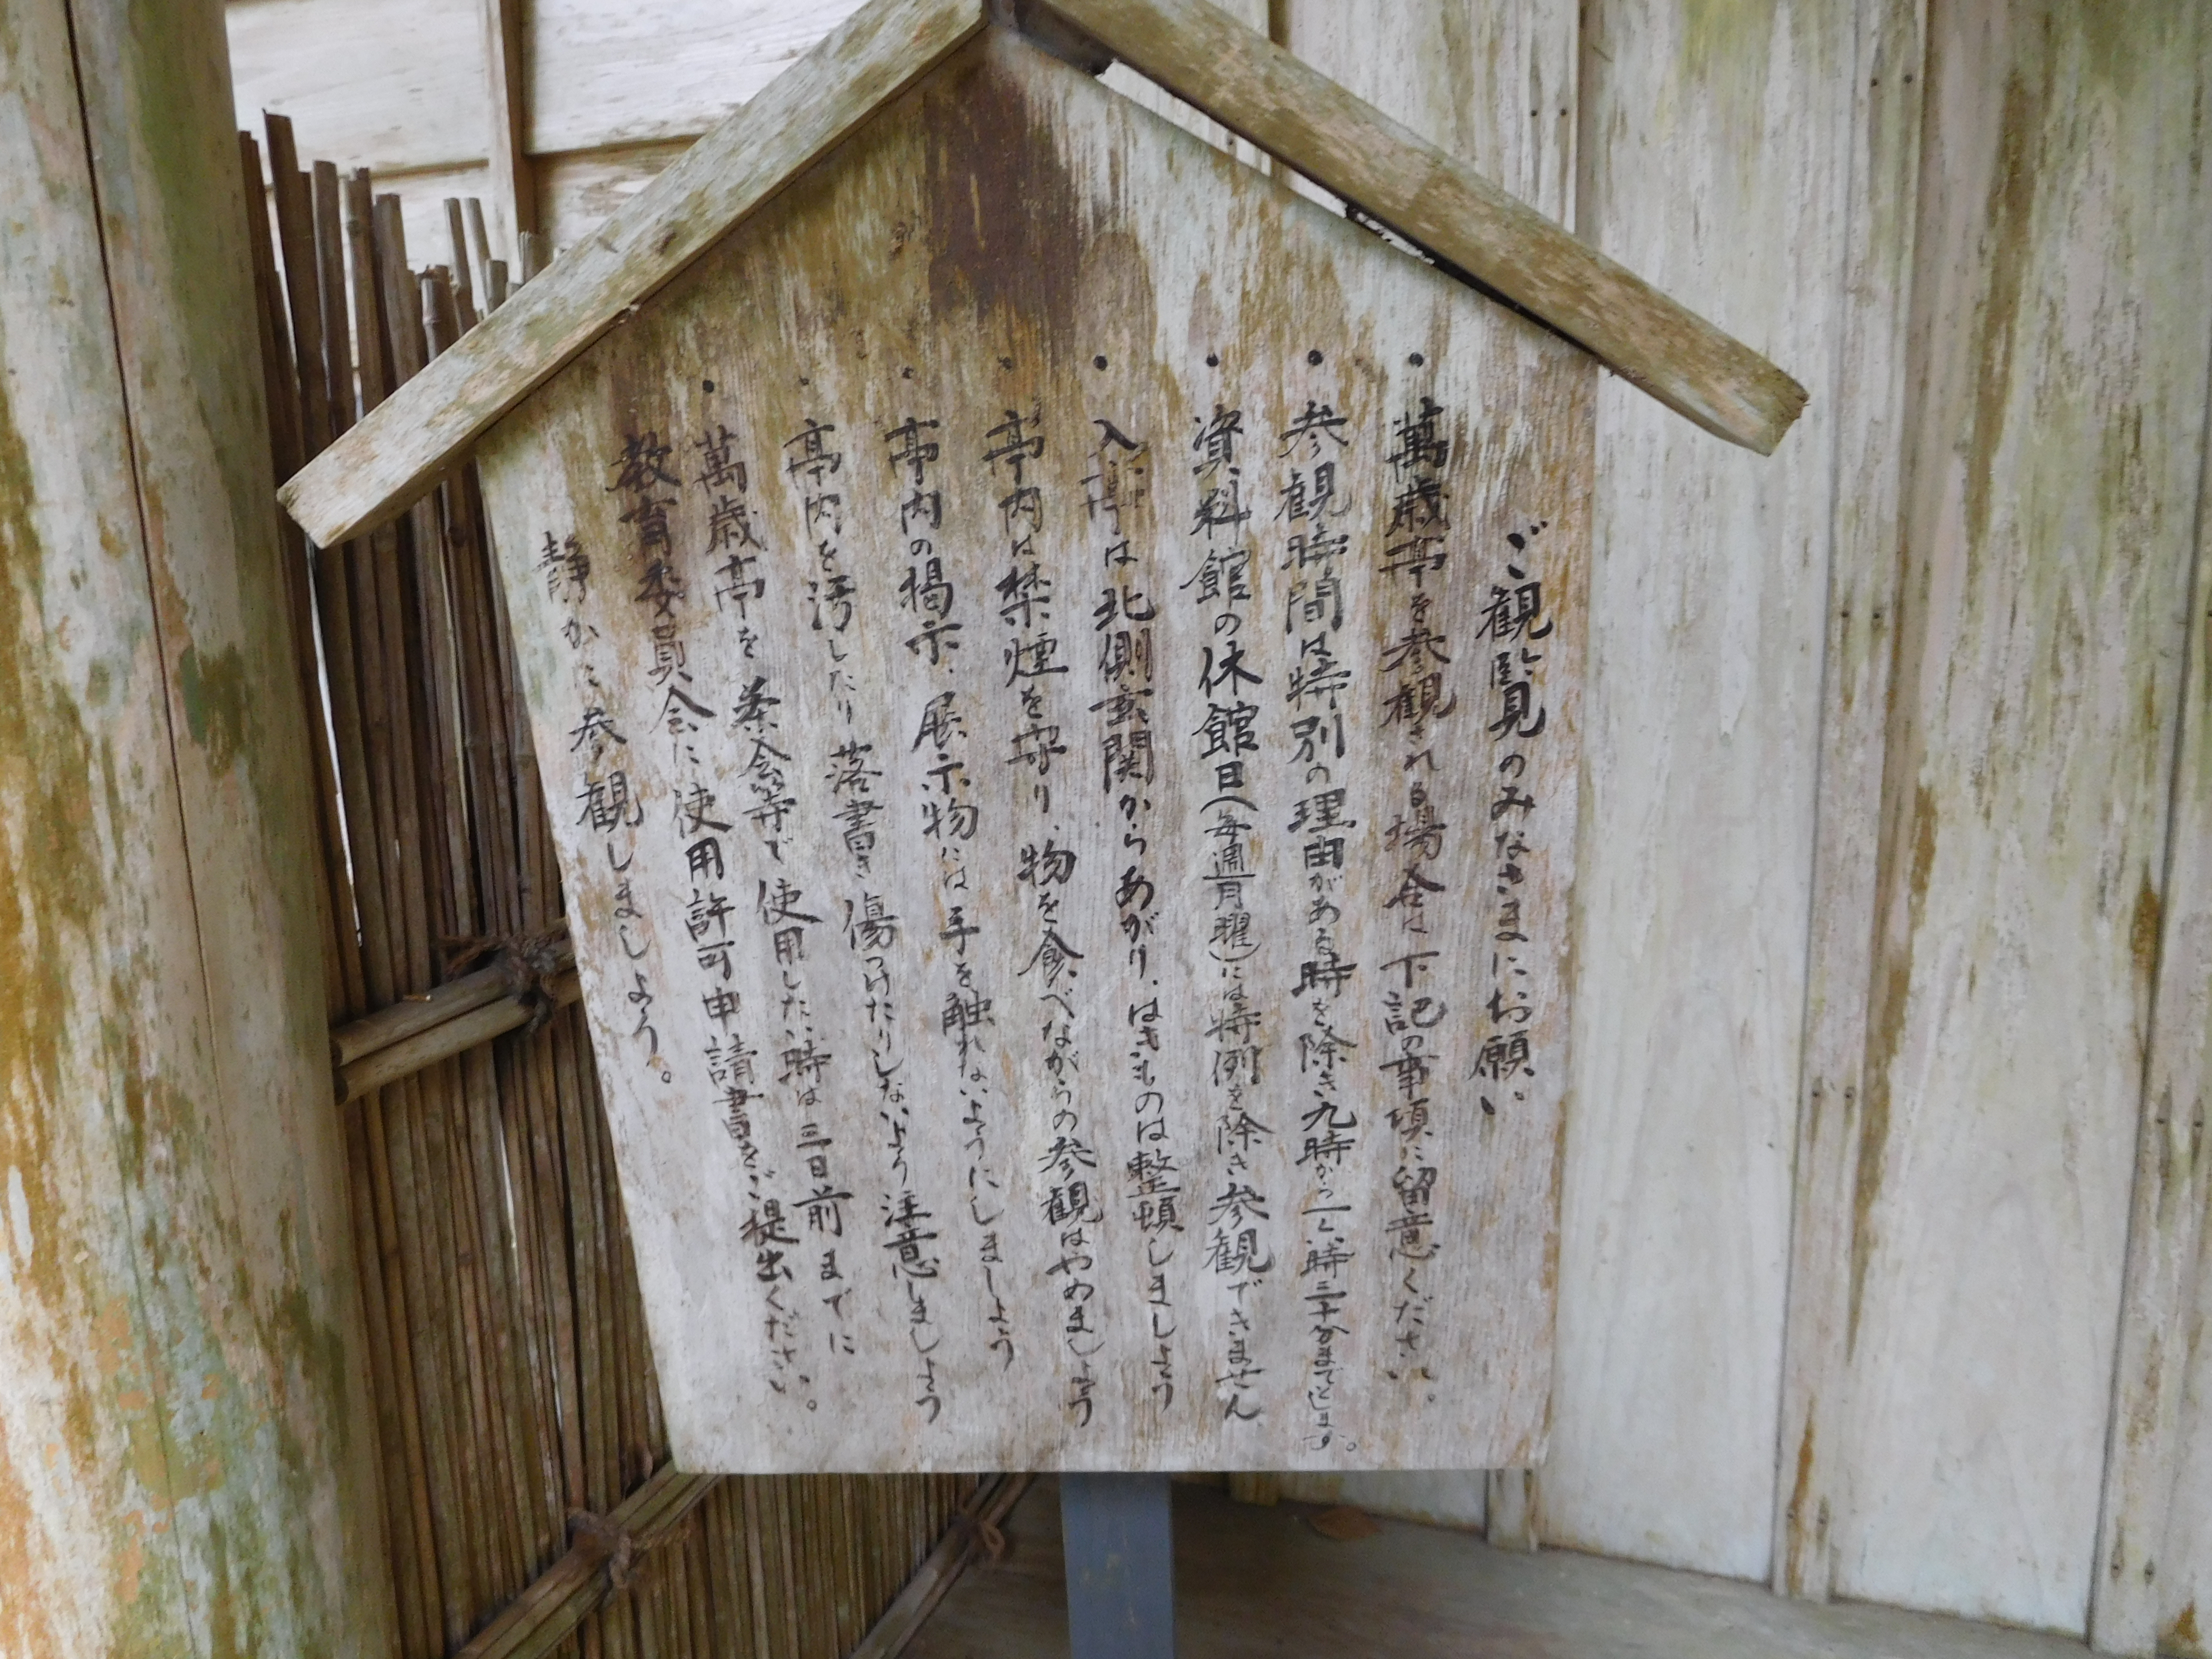 ご観覧のみなさまにお願い
・萬歳亭を参観される場合は下記の事項に留意ください。
・参観時間は特別の理由がある時を除き九時から一六時三十分までとします。
・資料館の休館日(毎週月曜)には特例を除き参観できません
・入亭は北側玄関からあがり、はきものは整頓しましょう
・亭内は禁煙を守り、物を食べながらの参観はやめましょう
・亭内の掲示、展示物には手を触れないようにしましょう
・亭内を汚したり落書き傷つけたりしないよう注意しましょう
・萬歳亭を茶会等で使用したい時は三日前までに
教育委員会に使用許可申請書をご提出ください。
静かに参観しましょう。